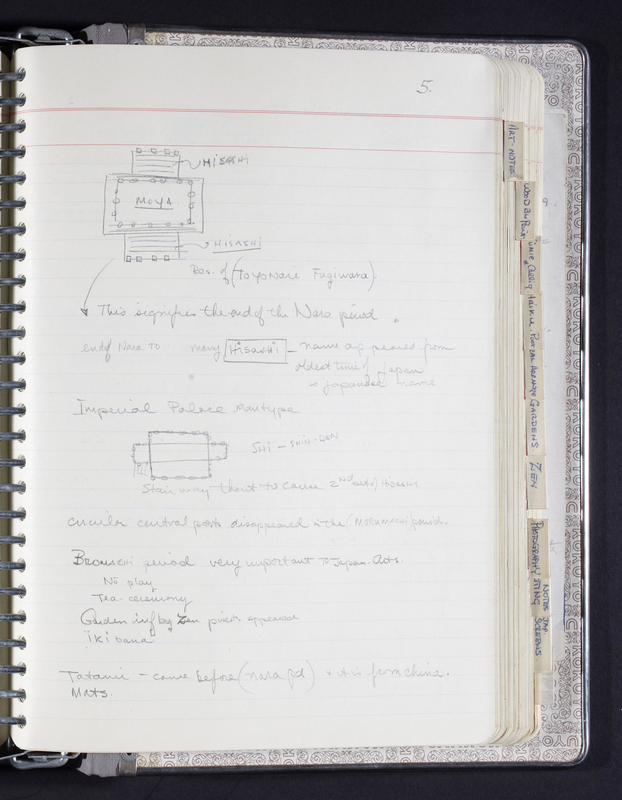 5.
HISASHI
MOYA
HISASHI
Res. of (Toyonari Fugiwara)
This signifies the end of the Nara period.
end of Nara to many Hisashi - name appeared from
oldest time of Japan
Japanese name
Imperial Palace
SHI - SHIN-DEN
Stairway 2nd set of Hisashi
circular central posts disappeared in the (Momumachi period.
period very important to Japan. Arts.
No play
Tea-ceremony
Garden inf by Zen priests appeared
ikibana
Tatami - came before (nara pd) & it is from China.
Mats.
ART-NOTES
GARDENS
ZEN
PHOTOGRAPHY
NOTES JAP
SCREENS